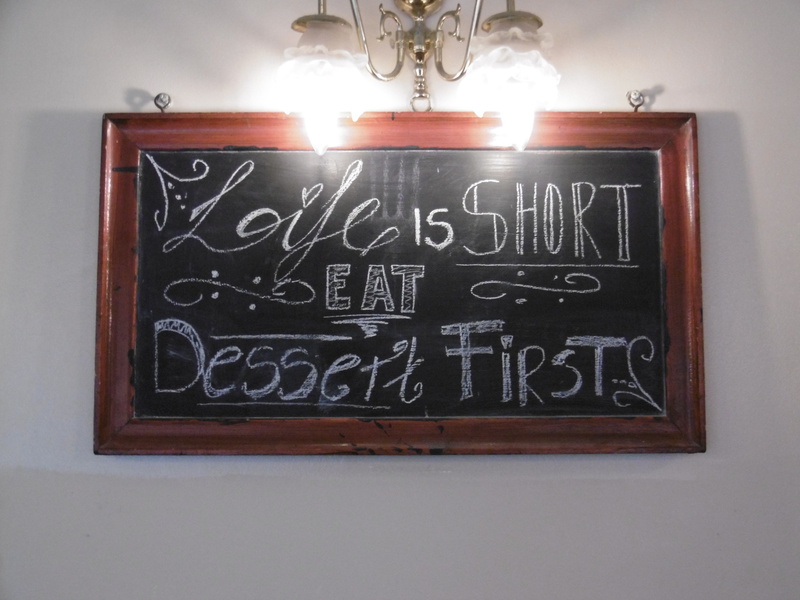 Life is SHORT
EAT
Dessert FirsT